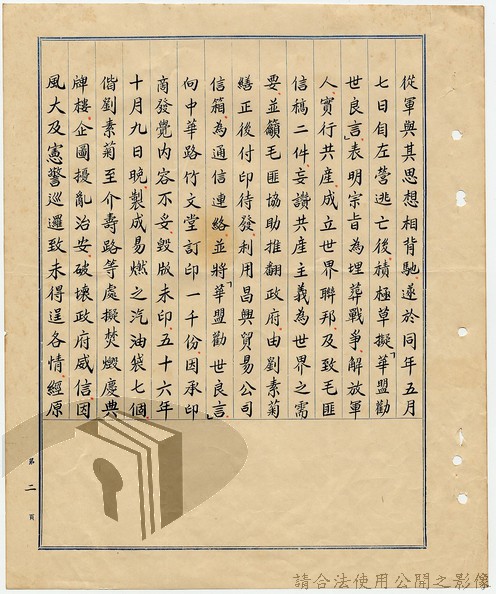 從軍與其思想相背馳遂於同年五月
七日自左營逃亡後積極草擬「華盟勸
世良言」表明宗旨為埋葬戰爭解放軍
人實行共產成立世界聯邦及致毛匪
信稿二件妄讚共產主義為世界之需
要並籲毛匪協助推翻政府由劉素菊
繕正後付印待發利用昌興貿易公司
信箱為通信連絡並將「華盟勸世良言」
向中華路竹文堂訂印一千份因承印
商發覺內容不妥毀版未印五十六年
十月九日晚製成易燃之汽油袋七個
偕劉素菊至介壽路等處擬焚燬慶典
牌樓企圖擾亂治安破壞政府威信因
風大及憲警巡邏致未得逞各情經原
第二頁
請合法使用公開之影像